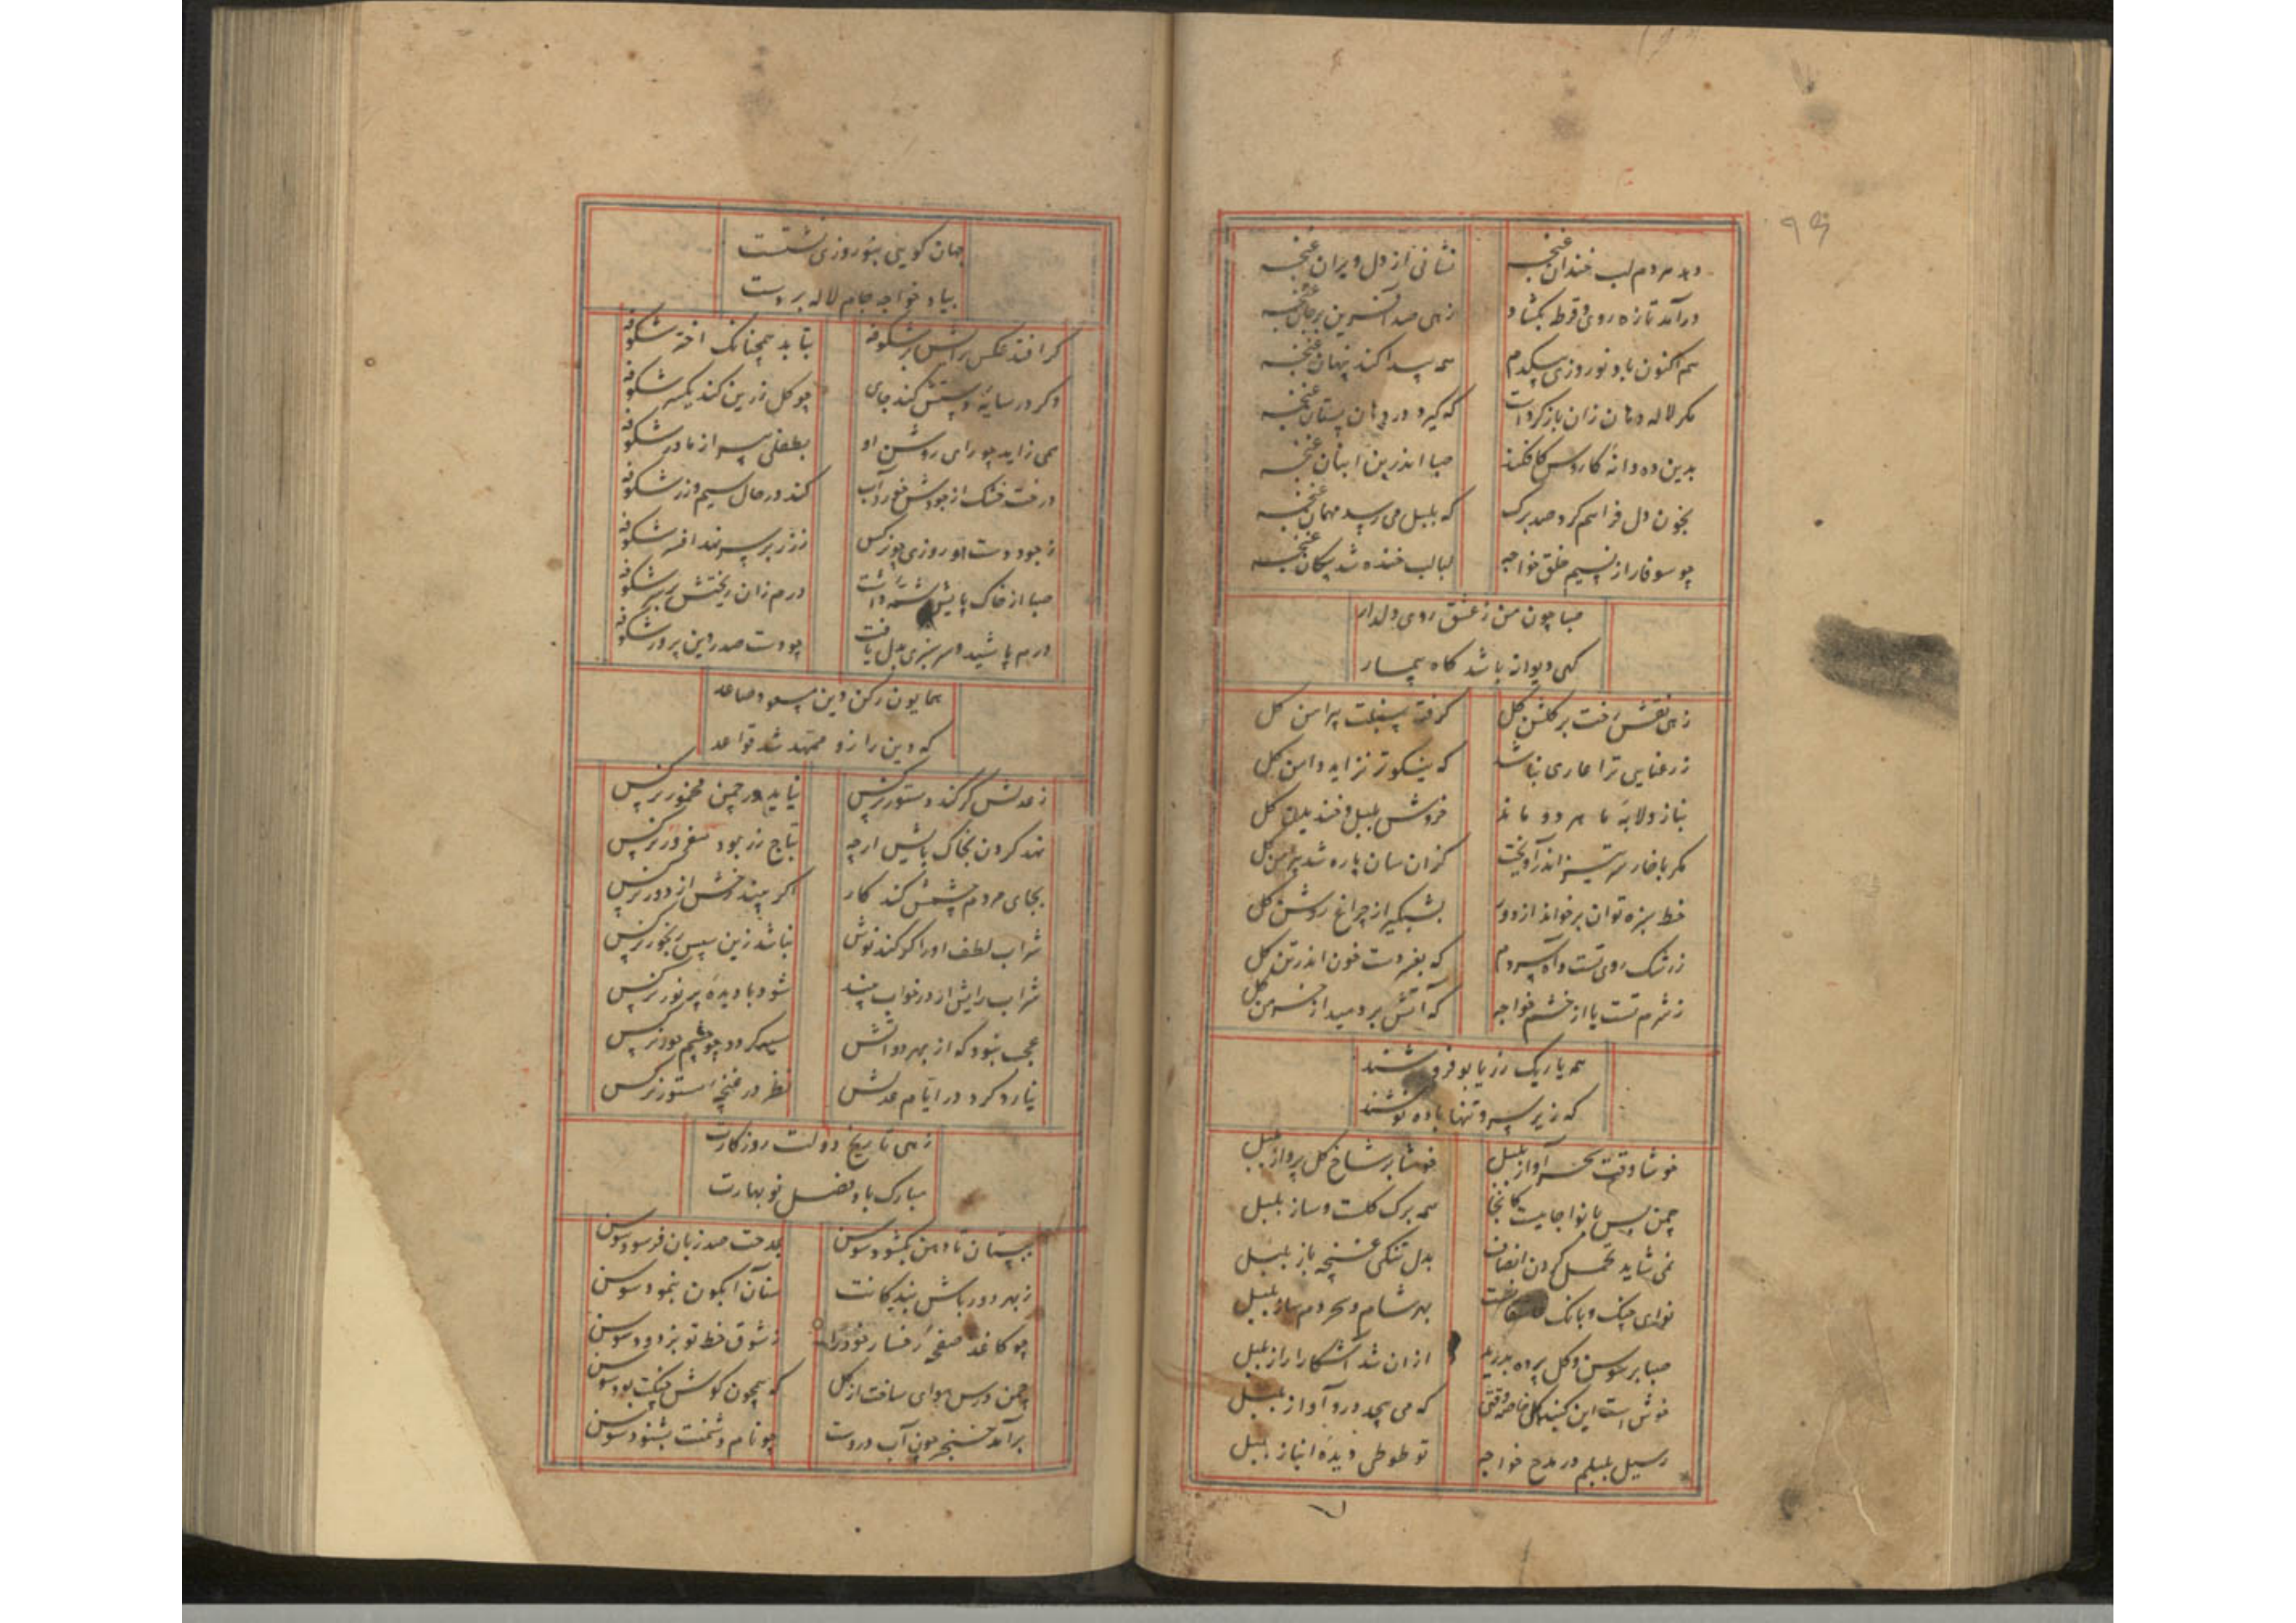 دهد هر دم لب خندان غنچه
نشانی از دل ویران غنچه
درآمد تازه روی و قرطه بکشاد
زهی صد آفرین بر جان غنچه
هم اکنون باد نوروزی بیکدم
همه پیدا کند پنهان غنچه
مکر لاله دهان زان باز کردست
که گیرد در دهان پستان غنچه
بدین ده دانه کاروس
صبا اندرین انبان غنچه
بخون دل فراهم کرد صد برک
که بلبل می رسد مهمان غنچه
چو سوفار از نسیم خلق خواجه
لبالب خنده شد پیکان غنچه
صبا چون من ز عشق روی دلدار
کهی دیوانه باشد کاه بیمار
زهی نقش رخت بر کلشن کل
کرفته سنبلت پیرامن کل
ز رعنایی ترا عاری نباشد
که نیکوتر نزاید دامن کل
بناز ولابهٔ ما هر دو ماند
خروش بلبل و خندیدن کل
مکر با خار سرتیز اندرآویخت
کزان سان پاره شد پیرهن کل
خط سبزه توان برخواند از دور
بشبکیر از چراغ روشن کل
ز رشک روی تست و آه سردم
که بفسردست خون اندر تن کل
ز شرم تست یا از خشم خواجه
که آتش بردمید از خرمن کل
همه یاریک ز یا بو فروشند
که زیر سرو تنها باده نوشند
خوشا وقت سحر آواز بلبل
خوشا بر شاخ کل پرواز بلبل
چمن بس با نوا جاییست کانجا
همه برک کلست و ساز بلبل
نمی شاید تحمل کردن انصاف
بدل تنکی غنچه باز بلبل
نوای چنک و بانک
بهر شام و سحر دم ساز بلبل
صبا بر سوسن و کل پرده بدرید
ازان شد آشکارا راز بلبل
خوش است این کنبد کل خاصه وقتی
که می پیچد درو آواز بلبل
رسیل بلبلم در مدح خواجه
تو طوطی دیدهٔ انباز بلبل
جهان کویی بنوروزی نشستست
بیاد خواجه جام لاله بر دست
کر افتد عکس رایش بر شکوفه
بتابد همچنانک اختر شکوفه
وکر در سایهٔ دستش کند جای
چو کل زرین کند یکسر شکوفه
همی زاید چو رای روشن او
بطفلی پیر از مادر شکوفه
درخت خشک از جودش خورد آب
کند در حال سیم و زر شکوفه
ز جود دست او روزی چو نرکس
ز زر بر سر نهد افسر شکوفه
صبا از خاک پایش شمه داشت
درم زان ریختش بر سر شکوفه
درم پاشید و سرسبزی بدل یافت
چو دست صدر دین پرور شکوفه
همایون رکن دین مسعود صاعد
که دین را زو ممهد شد قواعد
ز عدلش کر کند دستور نرکس
نیاید در چمن مخمور نرکس
نهد کردن بخاک پایش ارچه
بتاج زر بود مغرور نرکس
بجای مردم چشمش کند کار
اکر بیند رخش از دور نرکس
شراب لطف او را کر کند نوش
نباشد زین سپس رنجور نرکس
شراب رایش ار در خواب بیند
شود با دیدهٔ پر نور نرکس
عجب نبود که از بهر دواتش
سیه کردد چو چشم حور نرکس
نیارد کرد در ایام عدلش
نظر در غنچهٔ مستور نرکس
زهی تاریخ دولت روزکارت
مبارک باد فصل نوبهارت
ببستان تا دهن بکشود سوسن
بمدحت صد زبان فرسود سوسن
ز بهر دورباش بندکانت
سنان آبکون بنمود سوسن
چو کاغذ صفحهٔ رخسار خود را
ز شوق خط تو بزدود سوسن
چمن درس هوای ساخت از کل
که همچون کوش بود سوسن
برآمد خنجر چون آب در دست
چو نام دشمنت بشنود سوسن